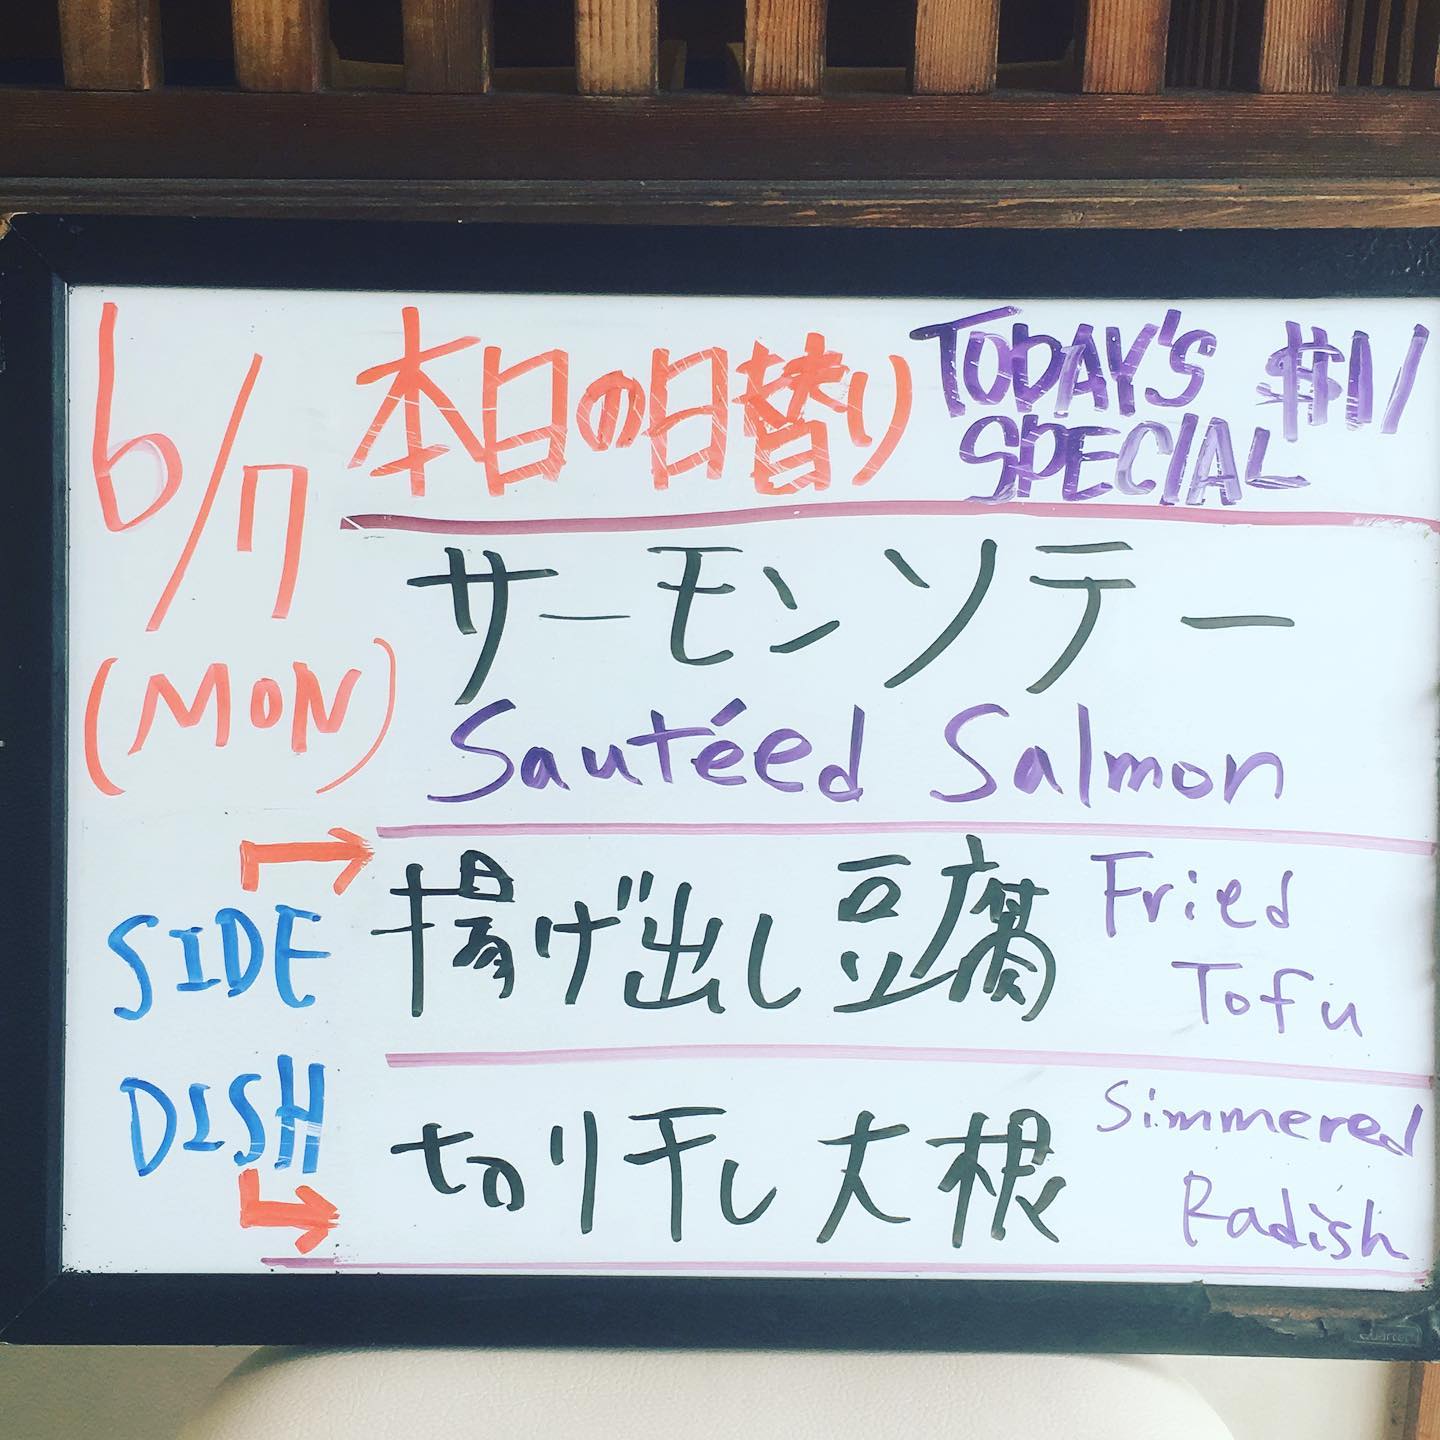 6/7
(MON)
本日の日替り
TODAY'S $11
SPECIAL
サーモンソテー
Sautéed Salmon
SIDE
DISH
揚げ出し豆腐
Fried
Tofu
切り干し大根
Simmered
Radish
Quartet